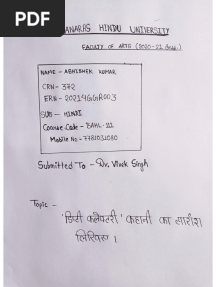 PDF
BANARAS HINDU UNIVERSITY
FACULTY OF ARTS (2020-21
NAME - ABHISHEK KUMAR
CRN - 372
ERN - 20219GGR003
SUB - HINDI
Course Code - BAHL-111
Mobile No - 7781031080
Submitted To - Dr. Vivek Singh
Topic -
'डिप्टी कलेक्टरी' कहानी का सारांश
लिखिए ।